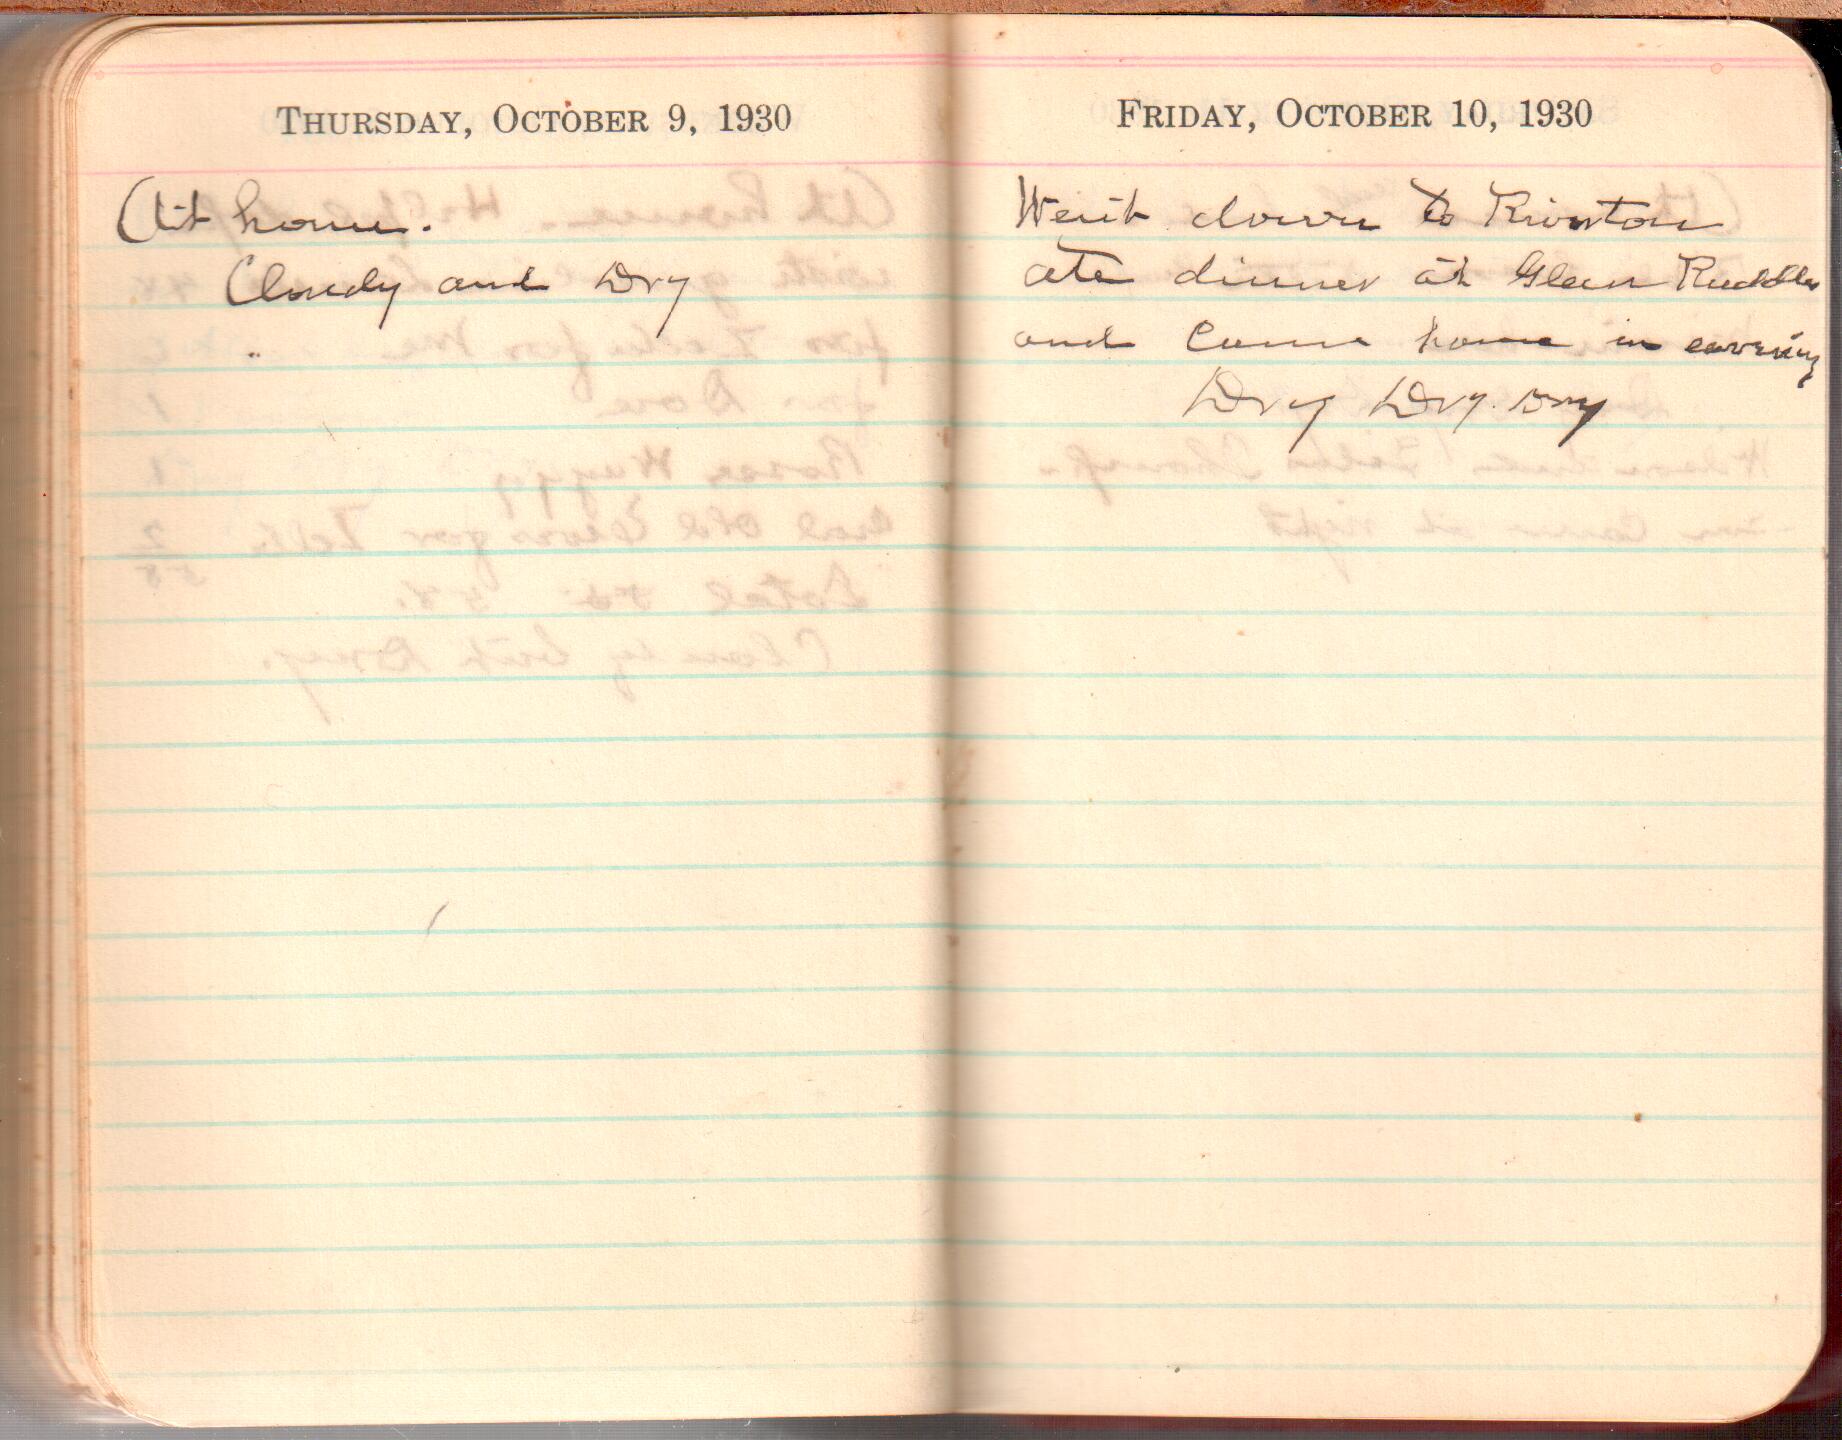 THURSDAY, OCTOBER 9, 1930
At home.
Cloudy and Dry
FRIDAY, OCTOBER 10, 1930
Went down to Riverton
ate dinner at Glenn
and came home in evening
Dry Dry. Dry